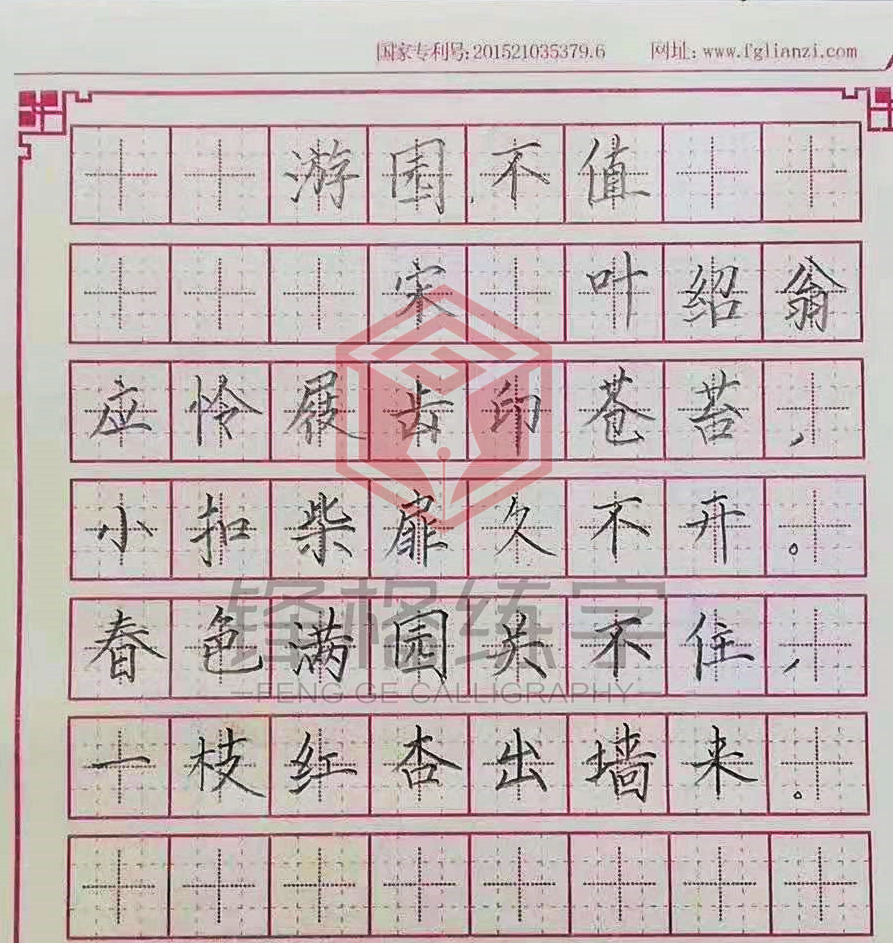 国家专利号:201521035379.6 网址: www.fglianzi.com
游园不值
宋 叶绍翁
应怜屐齿印苍苔，
小扣柴扉久不开。
春色满园关不住，
一枝红杏出墙来。
锋格练字
—FENG GE CALLIGRAPHY—